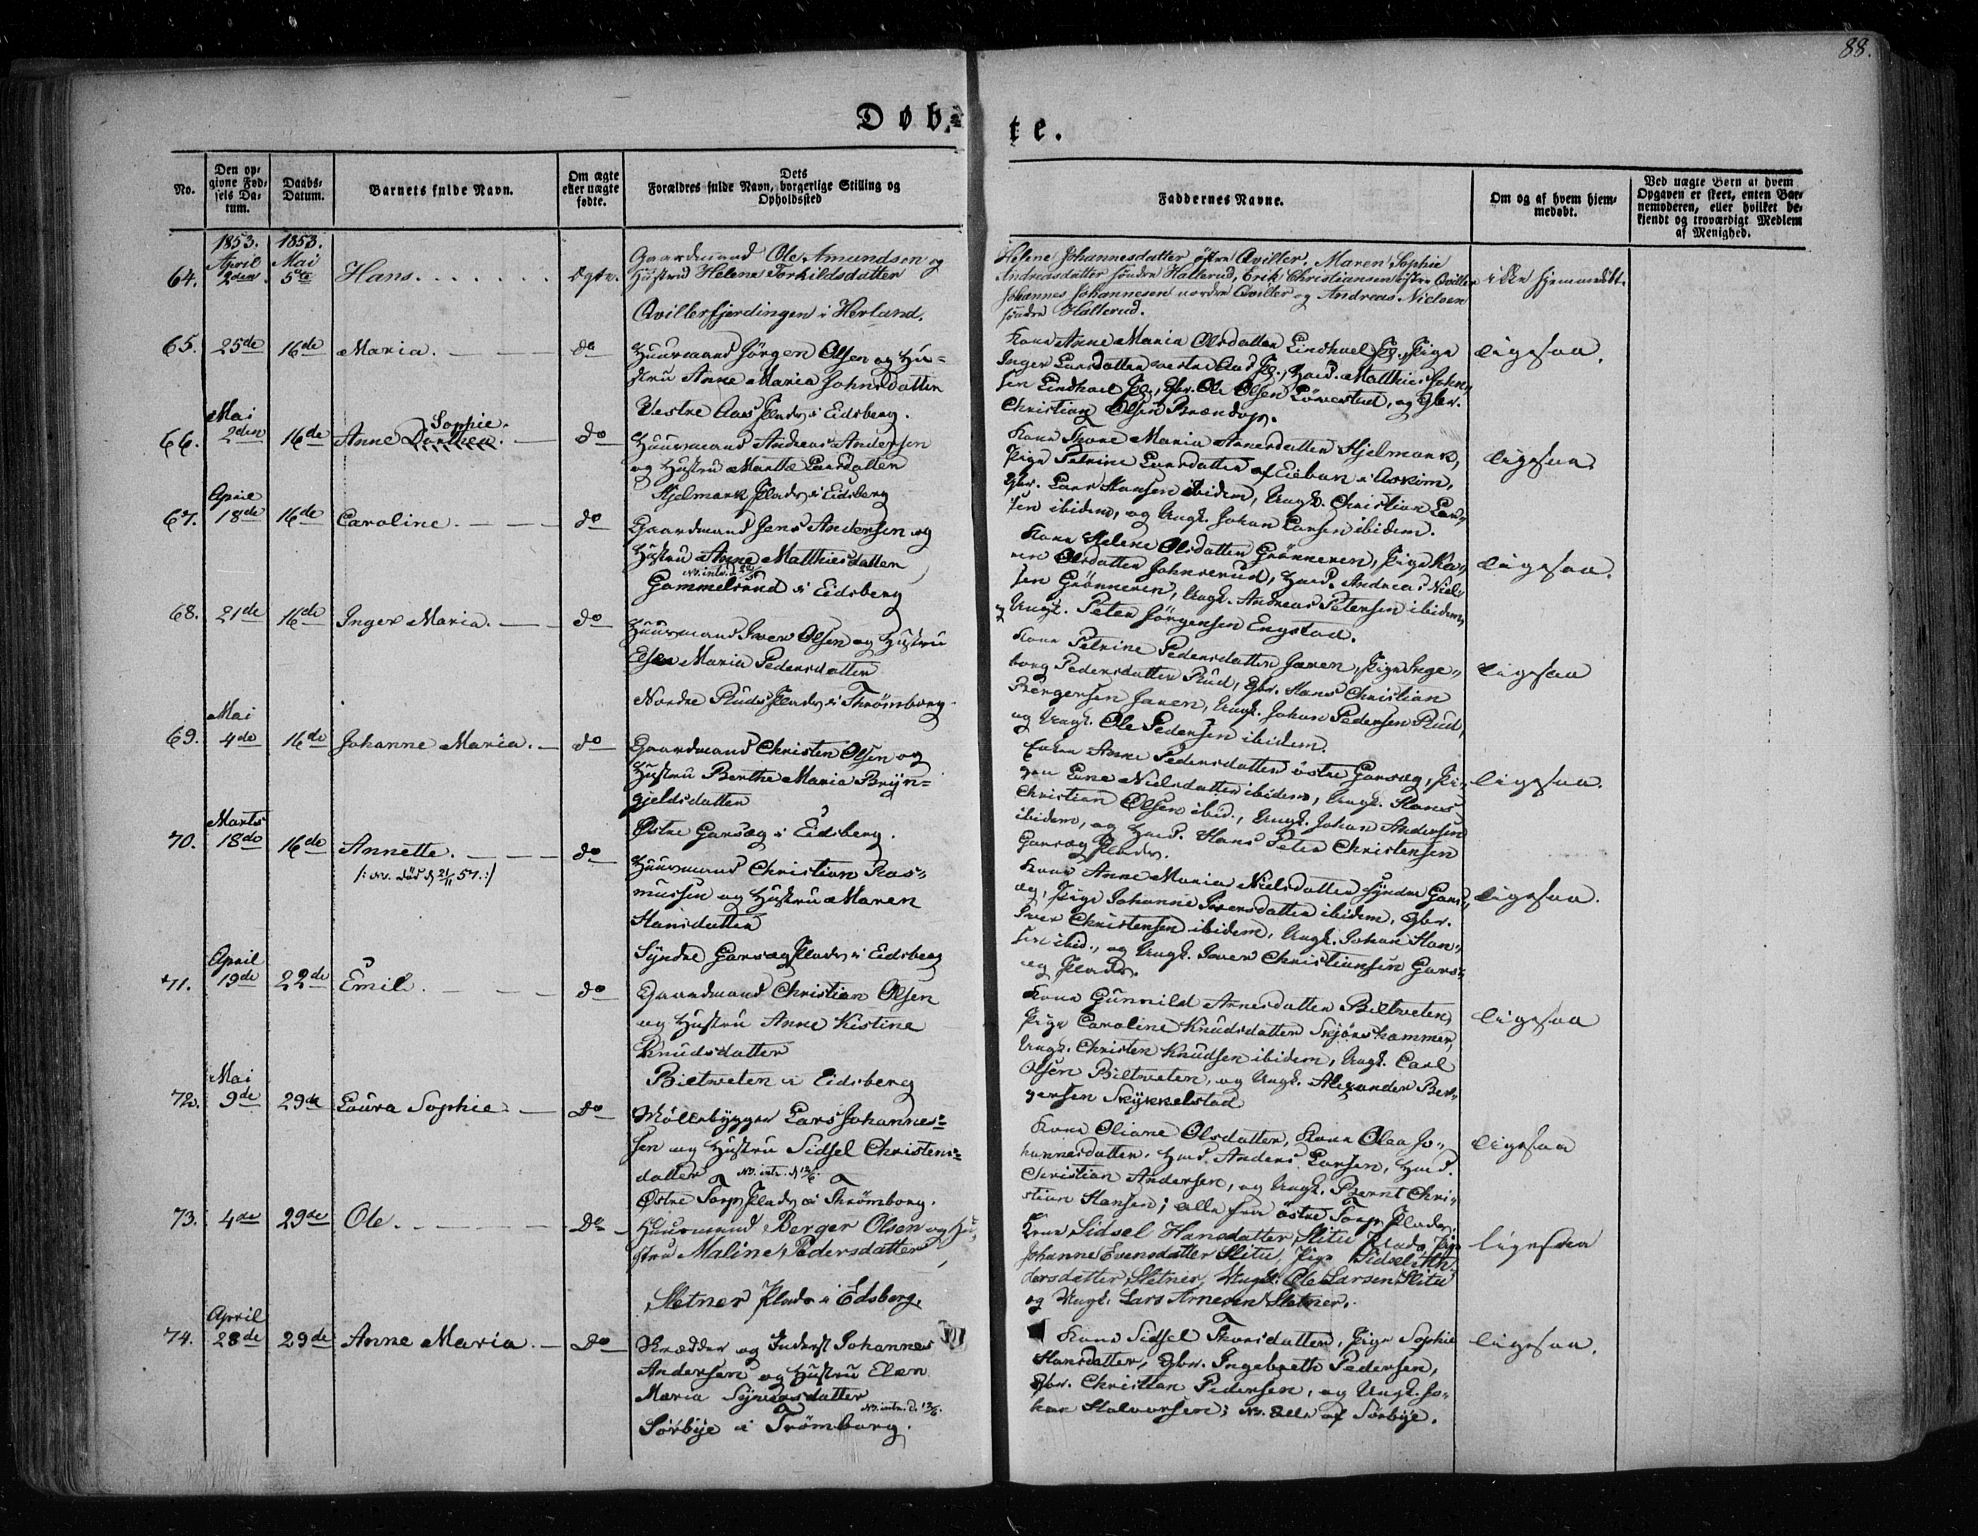 88.
Døb-
te.
No.
Den op-
givne Fød-
sels Da-
tum.
Daabs-
Datum.
Barnets fulde Navn.
Om ægte
eller uægte
fødte.
Dets
Forældres fulde Navn, borgerlige Stilling og
Opholdssted
Faddernes Navne.
Om og af hvem hjem-
medøbt.
Ved uægte Børn af hvem
Opgaven er skeet, enten Bar-
nemoderen, eller hvilket be-
kjendt og troværdigt Medlem
af Menighed.
1853. 1853.
April Mai
64. 2den 5te Hans. Ægte.
Gaardmand Ole Amundsen og
Hustru Helene Torkildsdatter
Qvillerfjerdingen i Herland.
Helene Johannesdatter østre Qviller, Maren Sophie
Andreasdatter søndre Hallerud, Erik Christiansen østre Qviller
Johannes Johannesen nordre Qviller og Andreas Nielsen
søndre Hallerud.
ikke hjemmedøbt.
65. 25de 16de Maria. do
Huusmand Jørgen Olsen og Hu-
stru Anne Maria Johnsdatter
Vestre Aas Plads i Eidsberg.
Kone Anne Maria Olsdatter Lindhoel Pl., Pige
Inger Larsdatter vestre Aas Pl., Huusm. Matthis John-
sen Lindhoel Pl., Gbr. Ole Olsen Løverstad, og Gbr.
Christian Olsen Brændop.
ligesaa.
Mai
Sophie.
66. 2den 16de Anne Dorthea. do
Huusmand Andreas Andersen
og Hustru Marthe Larsdatter
Hjelmark Plads i Eidsberg
Kone Thore Maria Arnesdatter Hjelmark,
Pige Petrine Larsdatter af Eieban i Askim,
Gbr. Lars Hansen ibidem, Ungk. Christian Lar-
sen ibidem, og Ungk. Johan Larsen ibidem.
ligesaa.
April
67. 18de 16de Caroline. do
Gaardmand Jens Andersen og
Hustru Anne Matthisdatter
Nb. intr. d 22/5
Gammelsrud i Eidsberg
Kone Helene Olsdatter Grønneren, Pige Ka-
ren Olsdatter Johnsrud, Huusm. Andreas Niel-
sen Grønneren, Ungk. Andreas Petersen ibidem,
og Ungk. Peter Jørgensen Engstad.
ligesaa.
68. 21de 16de Inger Maria. do
Huusmand Iver Olsen og Hustru
Elsen Maria Pedersdatter
Nordre Ruds Plads i Thrømborg.
Kone Petrine Pedersdatter Jaren, Pige Inge-
borg Pedersdatter Rud, Gbr. Hans Christian
Børgersen Jaren, Ungk. Johan Pedersen Rud,
og Ungk. Ole Pedersen ibidem.
ligesaa
Mai
69. 4de 16de Johanne Maria. do
Gaardmand Christen Olsen og
Hustru Berthe Maria Bryn-
gjeldsdatter
Østre Garsæg i Eidsberg.
Enken Anne Pedersdatter østre Garsæg, Pi-
gen Lene Nielsdatter ibidem, Ungk. Hans
Christian Olsen ibid., Ungk. Johan Andersen
ibidem, og Huusm. Hans Peter Christensen
Garsæg Plads.
ligesaa.
Marts
70. 18de 16de Annette. do
/: Nb. død d 21/11 57. :/
Huusmand Christian Ras-
mussen og Hustru Maren
Hansdatter
Syndre Garsæg Plads i Eidsberg
Kone Anne Maria Nielsdatter syndre Gars-
æg, Pige Johanne Iversdatter ibidem, Gbr.
Iver Christensen ibidem, Ungk. Johan Han-
sen ibid., og Ungk. Iver Christiansen Gars-
æg Plads.
ligesaa.
April
71. 19de 22de Emil. do
Gaardmand Christian Olsen
og Hustru Anne Kistine
Knudsdatter
Biltveten i Eidsberg
Kone Gunnild Arnesdatter Biltveten,
Pige Caroline Knudsdatter Skjønshammer,
Ungk. Christen Knudsen ibidem, Ungk. Carl
Olsen Biltveten, og Ungk. Alexander Ber-
gersen Skykkelstad
ligesaa
Mai
72. 9de 29de Laura Sophie. Do
Møllebygger Lars Johannes-
sen og Hustru Sidsel Christens-
datter Nb. intr. d 12/6
Østre Torp Plads i Thrømborg.
Kone Oliane Olsdatter, Kone Olea Jo-
hannesdatter, Huusm. Anders Larsen, Huusm.
Christian Andersen, og Ungk. Bernt Chri-
stian Hansen; alle fra østre Torp Plads.
ligesaa
73. 4de 29de Ole. Do
Huusmand Berger Olsen og Hu-
stru Maline Pedersdatter
Sletner Plads i Edsberg.
Kone Sidsel Hansdatter Slitu Plads, Pige
Johanne Evensdatter Slitu, Pige Sidsel An-
dersdatter Sletner, Ungk. Ole Larsen Slitu
og Ungk. Lars Arnesen Sletner.
ligesaa
April
74. 28de 29de Anne Maria. Do
Skrædder og Inderst Johannes
Andersen og Hustru Elen
Maria Syversdatter
Nb. intr. d. 13/6.
Sørbye i Trømborg.
Kone Sidsel Thorsdatter, Pige Sophie
Hansdatter, Gbr. Ingebreth Pedersen,
Gbr. Christian Pedersen, og Ungk. Jo-
han Halvorsen; Nb. alle af Sørbye.
ligesaa.